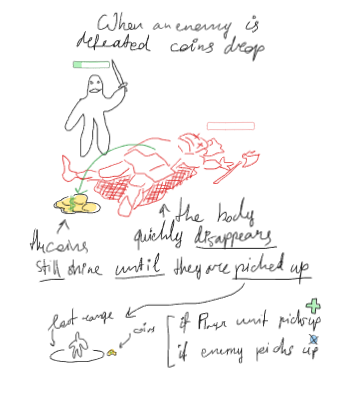 When an enemy is
defeated coins drop
the body
quickly disappears
the coins
still shine until they are picked up
loot range
coin
if Player unit picks up
if enemy picks up